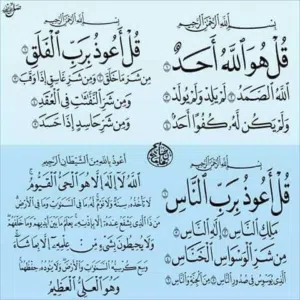 بِسْمِ اللَّهِ الرَّحْمَنِ الرَّحِيمِ
قُلْ هُوَ اللَّهُ أَحَدٌ
اللَّهُ الصَّمَدُ لَمْ يَلِدْ وَلَمْ يُولَدْ
وَلَمْ يَكُن لَّهُ كُفُوًا أَحَدٌ
بِسْمِ اللَّهِ الرَّحْمَنِ الرَّحِيمِ
قُلْ أَعُوذُ بِرَبِّ الْفَلَقِ
مِن شَرِّ مَا خَلَقَ وَمِن شَرِّ غَاسِقٍ إِذَا وَقَبَ
وَمِن شَرِّ النَّفَّٰثَٰتِ فِي الْعُقَدِ
وَمِن شَرِّ حَاسِدٍ إِذَا حَسَدَ
بِسْمِ اللَّهِ الرَّحْمَنِ الرَّحِيمِ
قُلْ أَعُوذُ بِرَبِّ النَّاسِ
مَلِكِ النَّاسِ إِلَٰهِ النَّاسِ
مِن شَرِّ الْوَسْوَاسِ الْخَنَّاسِ
الَّذِي يُوَسْوِسُ فِي صُدُورِ النَّاسِ مِنَ الْجِنَّةِ وَالنَّاسِ
أعوذ بالله من الشيطان الرجيم
اللَّهُ لَا إِلَٰهَ إِلَّا هُوَ الْحَيُّ الْقَيُّومُ
لَا تَأْخُذُهُ سِنَةٌ وَلَا نَوْمٌ لَهُ مَا فِي السَّمَٰوَاتِ وَمَا فِي الْأَرْضِ
مَن ذَا الَّذِي يَشْفَعُ عِندَهُ إِلَّا بِإِذْنِهِ يَعْلَمُ مَا بَيْنَ أَيْدِيهِمْ وَمَا خَلْفَهُمْ
وَلَا يُحِيطُونَ بِشَيْءٍ مِّنْ عِلْمِهِ إِلَّا بِمَا شَاءَ
وَسِعَ كُرْسِيُّهُ السَّمَٰوَاتِ وَالْأَرْضَ وَلَا يَئُودُهُ حِفْظُهُمَا
وَهُوَ الْعَلِيُّ الْعَظِيمُ